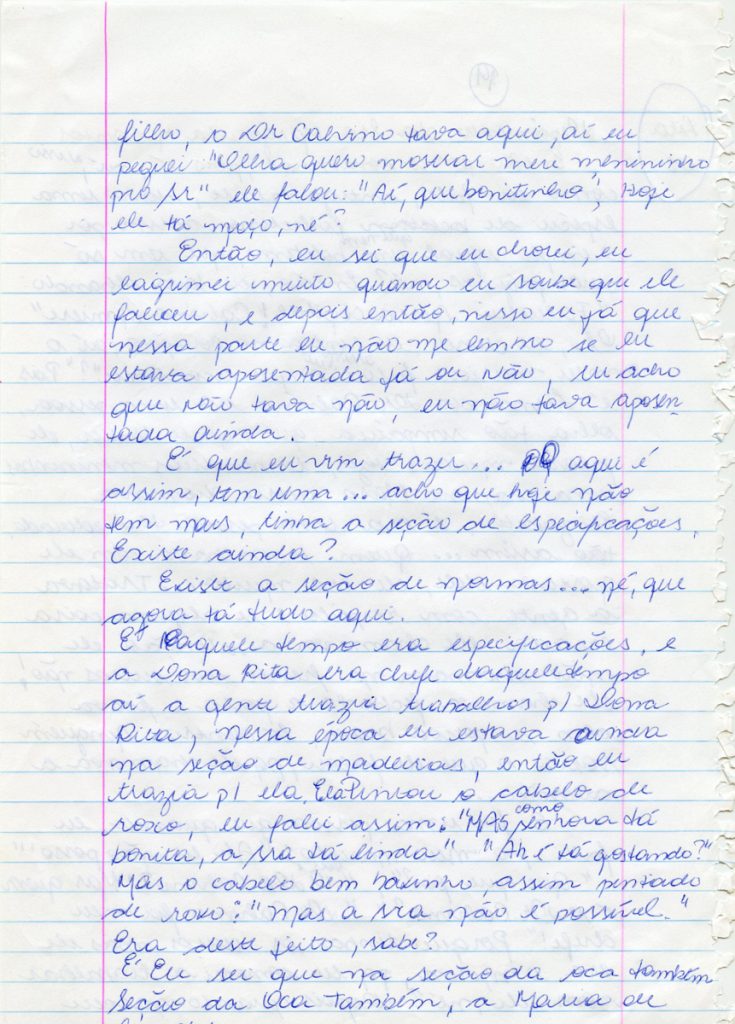 11
filho, o Dr Calvino tava aqui, aí eu
peguei: "Olha quero mostrar meu menininho
pro Sr" ele falou: "Aí, que bonitinho", Hoje
ele tá moço, né?
Então, eu sei que eu chorei, eu
lagrimei muito quando eu soube que ele
faleceu, e depois então, nisso eu já que
nessa parte eu não me lembro se eu
estava aposentada já ou não, eu acho
que não tava não, eu não tava aposen-
tada ainda.
É que eu vim trazer... aqui é
assim, tem uma... acho que hoje não
tem mais, tinha a seção de especificações.
Existe ainda?
Existe a seção de normas... né, que
agora tá tudo aqui.
E daquele tempo era especificações, e
a Dona Rita era chefe daquele tempo
aí a gente trazia trabalhos p/ Dona
Rita, nessa época eu estava ainda
na seção de madeiras, então eu
trazia p/ ela. Ela Pintou o cabelo de
roxo, eu falei assim: "MAS como senhora tá
bonita, a sra tá linda" "Ah é tá gostando?"
Mas o cabelo bem baixinho, assim pintado
de roxo: "Mas a sra não é possível."
Era deste jeito, sabe?
E Eu sei que na seção da oca também
Seção da Oca Também, a Maria de